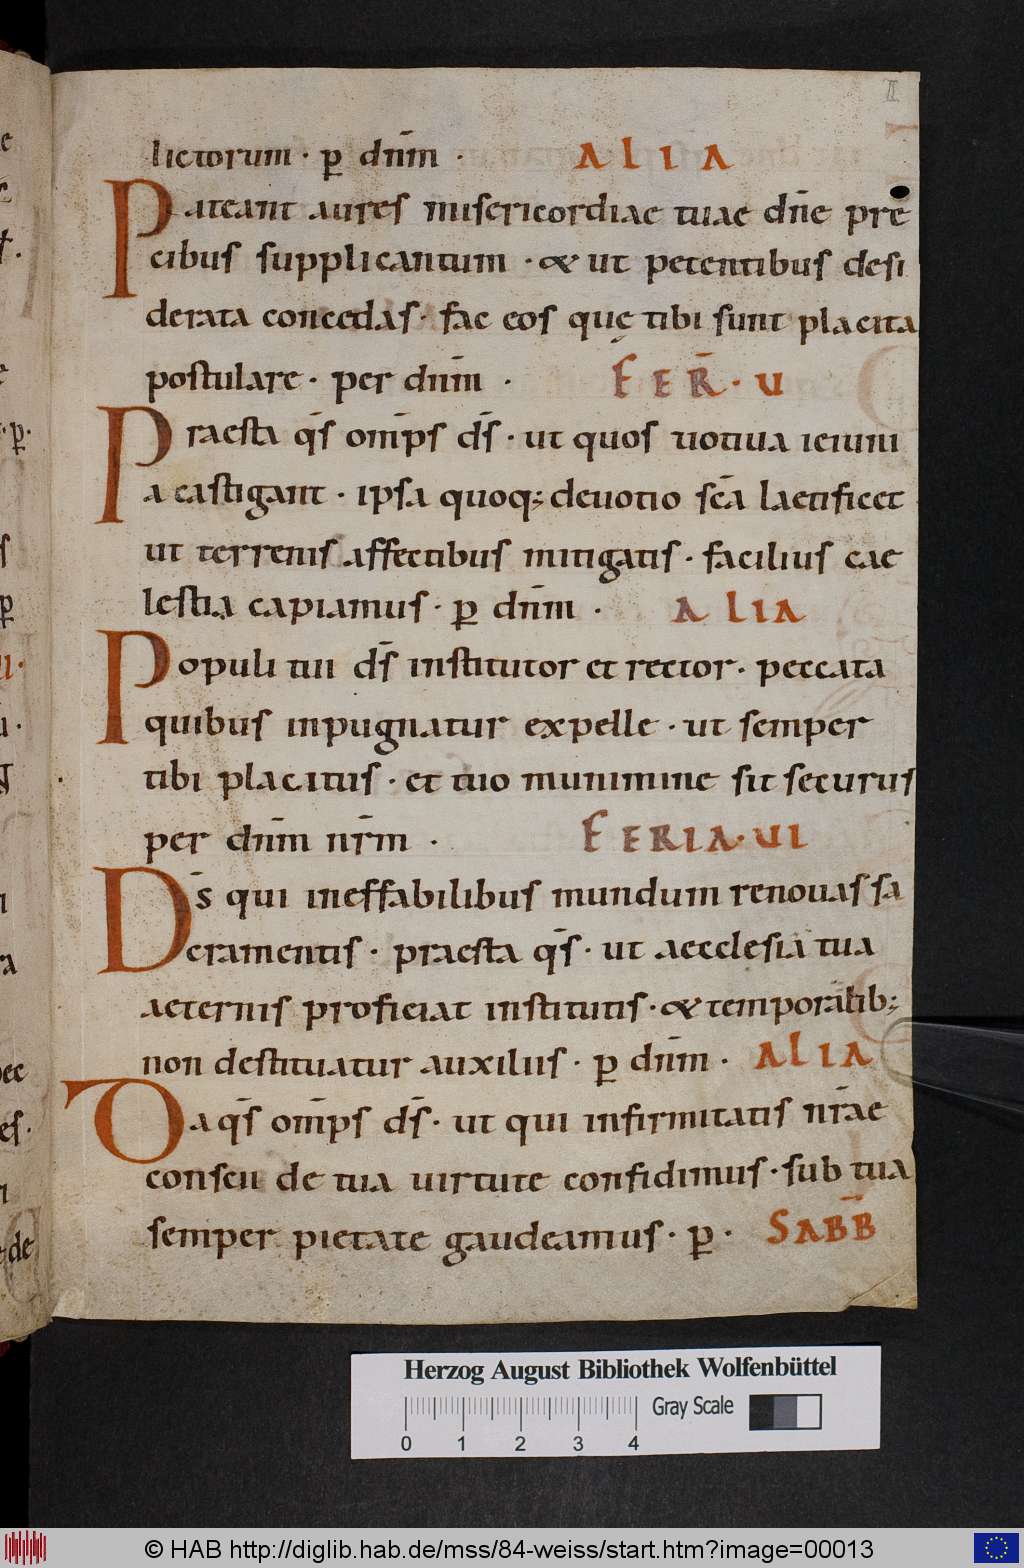 II
lictorum · p̱ dn̄m · ALIA
Pateant aures misericordiae tuae dn̄e pre
cibus supplicantium · & ut petentibus desi
derata concedas · fac eos quę tibi sunt placita
postulare · per dn̄m · FER̄ · U
Praesta qs̄ om̄ps ds̄ · ut quos uotiua ieiuni
a castigant · ipsa quoq; deuotio sc̄a laetificet
ut terrenis affectibus mitigatis · facilius cae
lestia capiamus · p̱ dn̄m · ALIA
Populi tui ds̄ institutor et rector · peccata
quibus inpugnatur expelle · ut semper
tibi placitus · et tuo munimine sit securus
per dn̄m nr̄m · FERIA · UI
Ds̄ qui ineffabilibus mundum renouas sa
cramentis · praesta qs̄ · ut aecclesia tua
aeternis proficiat institutis · & temporalib;
non destituatur auxiliis · p̱ dn̄m · ALIA
Da qs̄ om̄ps ds̄ · ut qui infirmitatis nr̄ae
conscii de tua uirtute confidimus · sub tua
semper pietate gaudeamus · p̱ · SABB̄
Herzog August Bibliothek Wolfenbüttel
Gray Scale
0 1 2 3 4
© HAB http://diglib.hab.de/mss/84-weiss/start.htm?image=00013